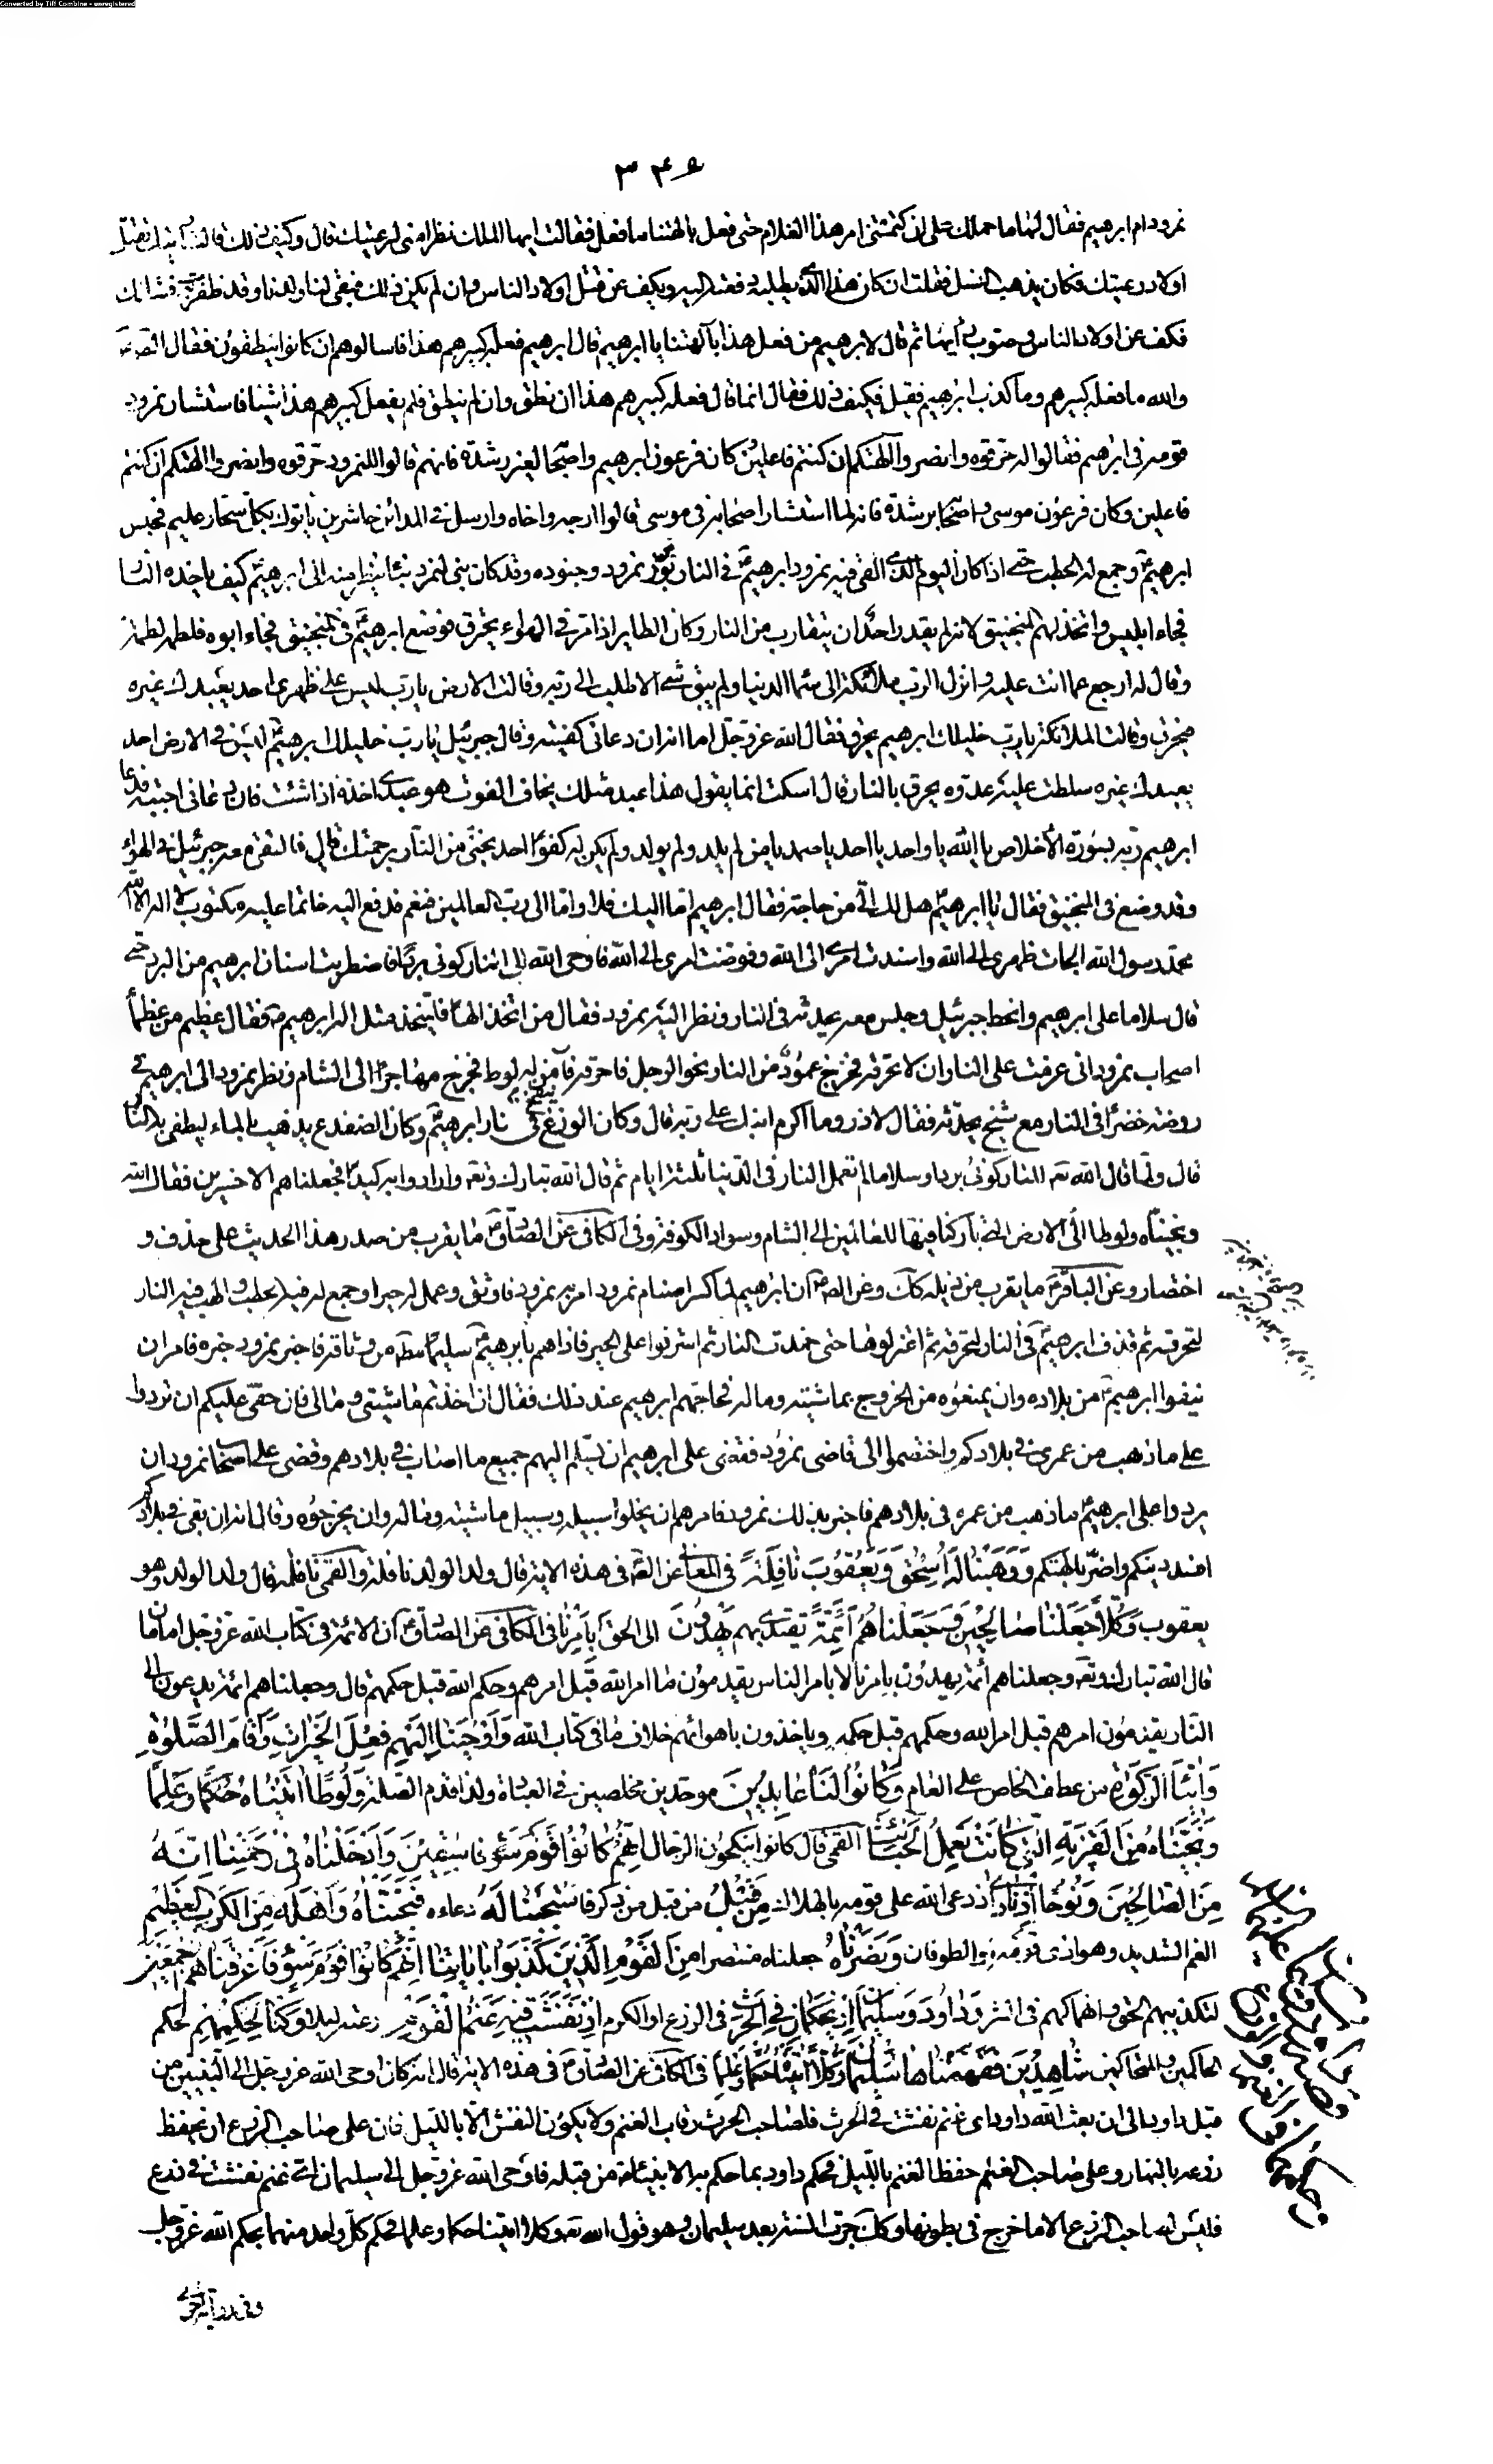 Converted by Tiff Combine - unregistered
٣٣٤
نمرود ام ابرهيم فقال لها ما حملك على ان كتمتنى امر هذا الغلام حتى فعل بالهتنا ما فعل فقالت ايها الملك نظرا منى لرعيتك قال وكيف ذلك قالت رايتك تقتل
اولاد رعيتك فكان يذهب النسل فقلت ان كان هذا الذى يطلبه دفعته اليه ويكف عن قتل اولاد الناس وان لم يكن ذلك فبقى لنا ولدنا وقد ظفرت به فشانك
فكف عن اولاد الناس فصوب رأيها ثم قال لابرهيم من فعل هذا بآلهتنا يا ابرهيم قال ابرهيم فعله كبيرهم هذا فاسالوهم ان كانوا ينطقون فقال الصادق
والله ما فعله كبيرهم وما كذب ابرهيم فقيل فكيف ذلك فقال انما قال فعله كبيرهم هذا ان نطق وان لم ينطق فلم يفعل كبيرهم هذا شيئا فاستشار نمرود
قومه فى ابرهيم فقالوا له حرقوه وانصروا آلهتكم ان كنتم فاعلين كان فرعون ابرهيم واصحابه لغير رشدة فانهم قالوا لنمرود حرقوه وانصروا الهتكم ان كنتم
فاعلين وكان فرعون موسى واصحابه لرشدة فانه لما استشار اصحابه فى موسى قالوا ارجه واخاه وارسل فى المدائن حاشرين ياتوك بكل سحار عليم فحبس
ابرهيم وجمع له الحطب حتى اذا كان اليوم الذى القى فيه نمرود ابرهيم فى النار برز نمرود وجنوده وقد كان بنى لنمرود بناء ينظر منه الى ابرهيم كيف ياخذه النار
فجاء ابليس واتخذ لهم المنجنيق لانه لم يقدر احد ان يتقارب من النار وكان الطاير اذا مر فى الهواء يحترق فوضع ابرهيم فى المنجنيق فجاء ابوه فلطمه لطمة
وقال له ارجع عما انت عليه وانزل الرب ملائكته الى سماء الدنيا ولم يبق شئ الا طلب الى ربه وقالت الارض يا رب ليس على ظهرى احد يعبدك غيره
فيحرق وقالت الملائكة يا رب خليلك ابرهيم يحرق فقال الله عز وجل اما انه ان دعانى كفيته وقال جبرئيل يا رب خليلك ابرهيم ليس فى الارض احد
يعبدك غيره سلطت عليه عدوه يحرق بالنار قال اسكت انما يقول هذا عبد مثلك يخاف الفوت هو عبدى آخذه اذا شئت فان دعانى اجبته فدعا
ابرهيم ربه بسورة الأخلاص يا الله يا واحد يا احد يا صمد يا من لم يلد ولم يولد ولم يكن له كفوا احد نجنى من النار برحمتك قال فالتقى معه جبرئيل فى الهواء
وقد وضع فى المنجنيق فقال يا ابرهيم هل لك الى من حاجة فقال ابرهيم اما اليك فلا واما الى رب العالمين فنعم فدفع اليه خاتما عليه مكتوب لا اله الا الله
محمد رسول الله الجات ظهرى الى الله واسندت امرى الى الله وفوضت امرى الى الله فاوحى الله الى النار كونى بردا فاضطربت اسنان ابرهيم من البرد حتى
قال وسلاما على ابرهيم وانحط جبرئيل وجلس معه يحدثه فى النار ونظر اليه نمرود فقال من اتخذ الها فليتخذ مثل اله ابرهيم فقال عظيم من عظماء
اصحاب نمرود انى عزمت على النار ان لا تحرقه فخرج عمود من النار نحو الرجل فاحرقه فآمن له لوط فخرج مهاجرا الى الشام ونظر نمرود الى ابرهيم فى
روضة خضراء فى النار مع شيخ يحدثه فقال لاذر وما اكرم ابنك على ربه قال وكان الوزغ ينفخ فى نار ابرهيم وكان الضفدع يذهب بالماء ليطفى به النار
قال ولما قال الله تع للنار كونى بردا وسلاما لم تعمل النار فى الدنيا ثلثة ايام ثم قال الله تبارك وتع وارادوا به كيدا فجعلناهم الاخسرين فقال الله
ونجيناه ولوطا الى الارض التى باركنا فيها للعالمين الى الشام وسواد الكوفة وفى الكافى عن الصادق ما يقرب من صدر هذا الحديث على حذف و
اختصار وعن الباقر ما يقرب من ذيله كك وعن الص ان ابرهيم لما كسر اصنام نمرود امر به نمرود فاوثق وعمل له حيرا وجمع له فيه الحطب والهب فيه النار
ثم قذف ابرهيم فى النار لتحرقه ثم اعتزلوها حتى خمدت النار ثم اشرفوا على الحير فاذا هم بابرهيم سليما مطلقا من وثاقه فاخبر نمرود خبره فامر ان
ينفوا ابرهيم من بلاده وان يمنعوه من الخروج بماشيته وماله فحاجهم ابرهيم عند ذلك فقال ان اخذتم ماشيتى ومالى فان حقى عليكم ان تردوا
على ما ذهب من عمرى فى بلادكم واختصموا الى قاضى نمرود فقضى على ابرهيم ان يسلم اليهم جميع ما اصاب فى بلادهم وقضى على اصحاب نمرود ان
يردوا على ابرهيم ما ذهب من عمره فى بلادهم فاخبر بذلك نمرود فامرهم ان يخلوا سبيله وسبيل ماشيته وماله وان يخرجوه وقال انه ان بقى فى بلادكم
افسد دينكم واضر بالهتكم وَوَهَبْنَا لَهُ اِسْحٰقَ وَيَعْقُوبَ نَافِلَةً فى المعانى عن الص فى هذه الاية قال ولد الولد نافلة والقمى نافلة قال ولد الولد وهو
يعقوب وَكُلّاً جَعَلْنَا صَالِحِينَ وَجَعَلْنَاهُمْ اَئِمَّةً يقتدى بهم يَهْدُونَ الى الحق بِاَمْرِنَا فى الكافى عن الصادق ان الائمة فى كتاب الله عز وجل امامان
قال الله تبارك وتع وجعلناهم أئمة يهدون بامرنا لا بامر الناس يقدمون ما امر الله قبل امرهم وحكم الله قبل حكمهم قال وجعلناهم ائمة يدعون الى
النار يقدمون امرهم قبل امر الله وحكمهم قبل حكمه وياخذون باهوائهم خلاف ما فى كتاب الله وَاَوْحَيْنَا اِلَيْهِمْ فِعْلَ الْخَيْرَاتِ وَاِقَامَ الصَّلٰوةِ
وَاِيتَاءَ الزَّكٰوةِ من عطف الخاص على العام وَكَانُوا لَنَا عَابِدِينَ موحدين مخلصين فى العبادة ولذا قدم الصلة وَلُوطًا اٰتَيْنَاهُ حُكْمًا وَعِلْمًا
وَنَجَّيْنَاهُ مِنَ الْقَرْيَةِ الَّتِى كَانَتْ تَعْمَلُ الْخَبَائِثَ القمى قال كانوا ينكحون الرجال اِنَّهُمْ كَانُوا قَوْمَ سَوْءٍ فَاسِقِينَ وَاَدْخَلْنَاهُ فِى رَحْمَتِنَا اِنَّهُ
مِنَ الصَّالِحِينَ وَنُوحًا اِذْ نَادٰى اذ دعى الله على قومه بالهلاك مِنْ قَبْلُ من قبل من ذكر فَاسْتَجَبْنَا لَهُ دعاءه فَنَجَّيْنَاهُ وَاَهْلَهُ مِنَ الْكَرْبِ الْعَظِيمِ
الغم الشديد وهو اذى قومه والطوفان وَنَصَرْنَاهُ جعلناه منتصرا مِنَ الْقَوْمِ الَّذِينَ كَذَّبُوا بِاٰيَاتِنَا اِنَّهُمْ كَانُوا قَوْمَ سَوْءٍ فَاَغْرَقْنَاهُمْ اَجْمَعِينَ
لتكذيبهم الحق وانهماكهم فى الشر وَدَاوُدَ وَسُلَيْمَانَ اِذْ يَحْكُمَانِ فِى الْحَرْثِ فى الزرع او الكرم اِذْ نَفَشَتْ فِيهِ غَنَمُ الْقَوْمِ رعته ليلا وَكُنَّا لِحُكْمِهِمْ لحكم
الحاكمين والمتحاكمين شَاهِدِينَ فَفَهَّمْنَاهَا سُلَيْمَانَ وَكُلّاً اٰتَيْنَا حُكْمًا وَعِلْمًا فى الكافى عن الصادق فى هذه الاية قال انه كان اوحى الله عز وجل الى النبيين من
قبل داود الى ان بعث الله داود اى غنم نفشت فى الحرث فلصاحب الحرث رقاب الغنم ولا يكون النفش الا بالليل فان على صاحب الزرع ان يحفظ
زرعه بالنهار وعلى صاحب الغنم حفظ الغنم بالليل فحكم داود بما حكم به الانبياء من قبله فاوحى الله عز وجل الى سليمان اى غنم نفشت فى زرع
فليس لصاحب الزرع الا ما خرج من بطونها وكك جرت السنة بعد سليمان وهو قول الله تع وكلا اتينا حكما وعلما فحكم كل واحد منهما بحكم الله عز وجل
وفى رواية اخرى